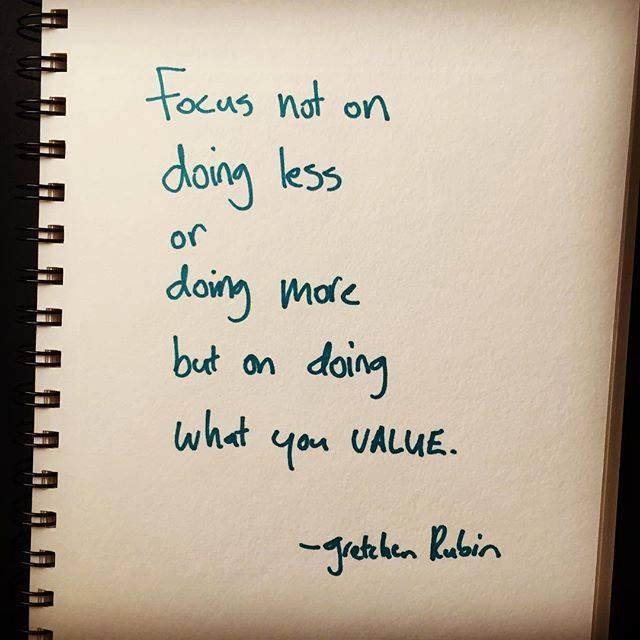 Focus not on
doing less
or
doing more
but on doing
what you VALUE.
-gretchen Rubin